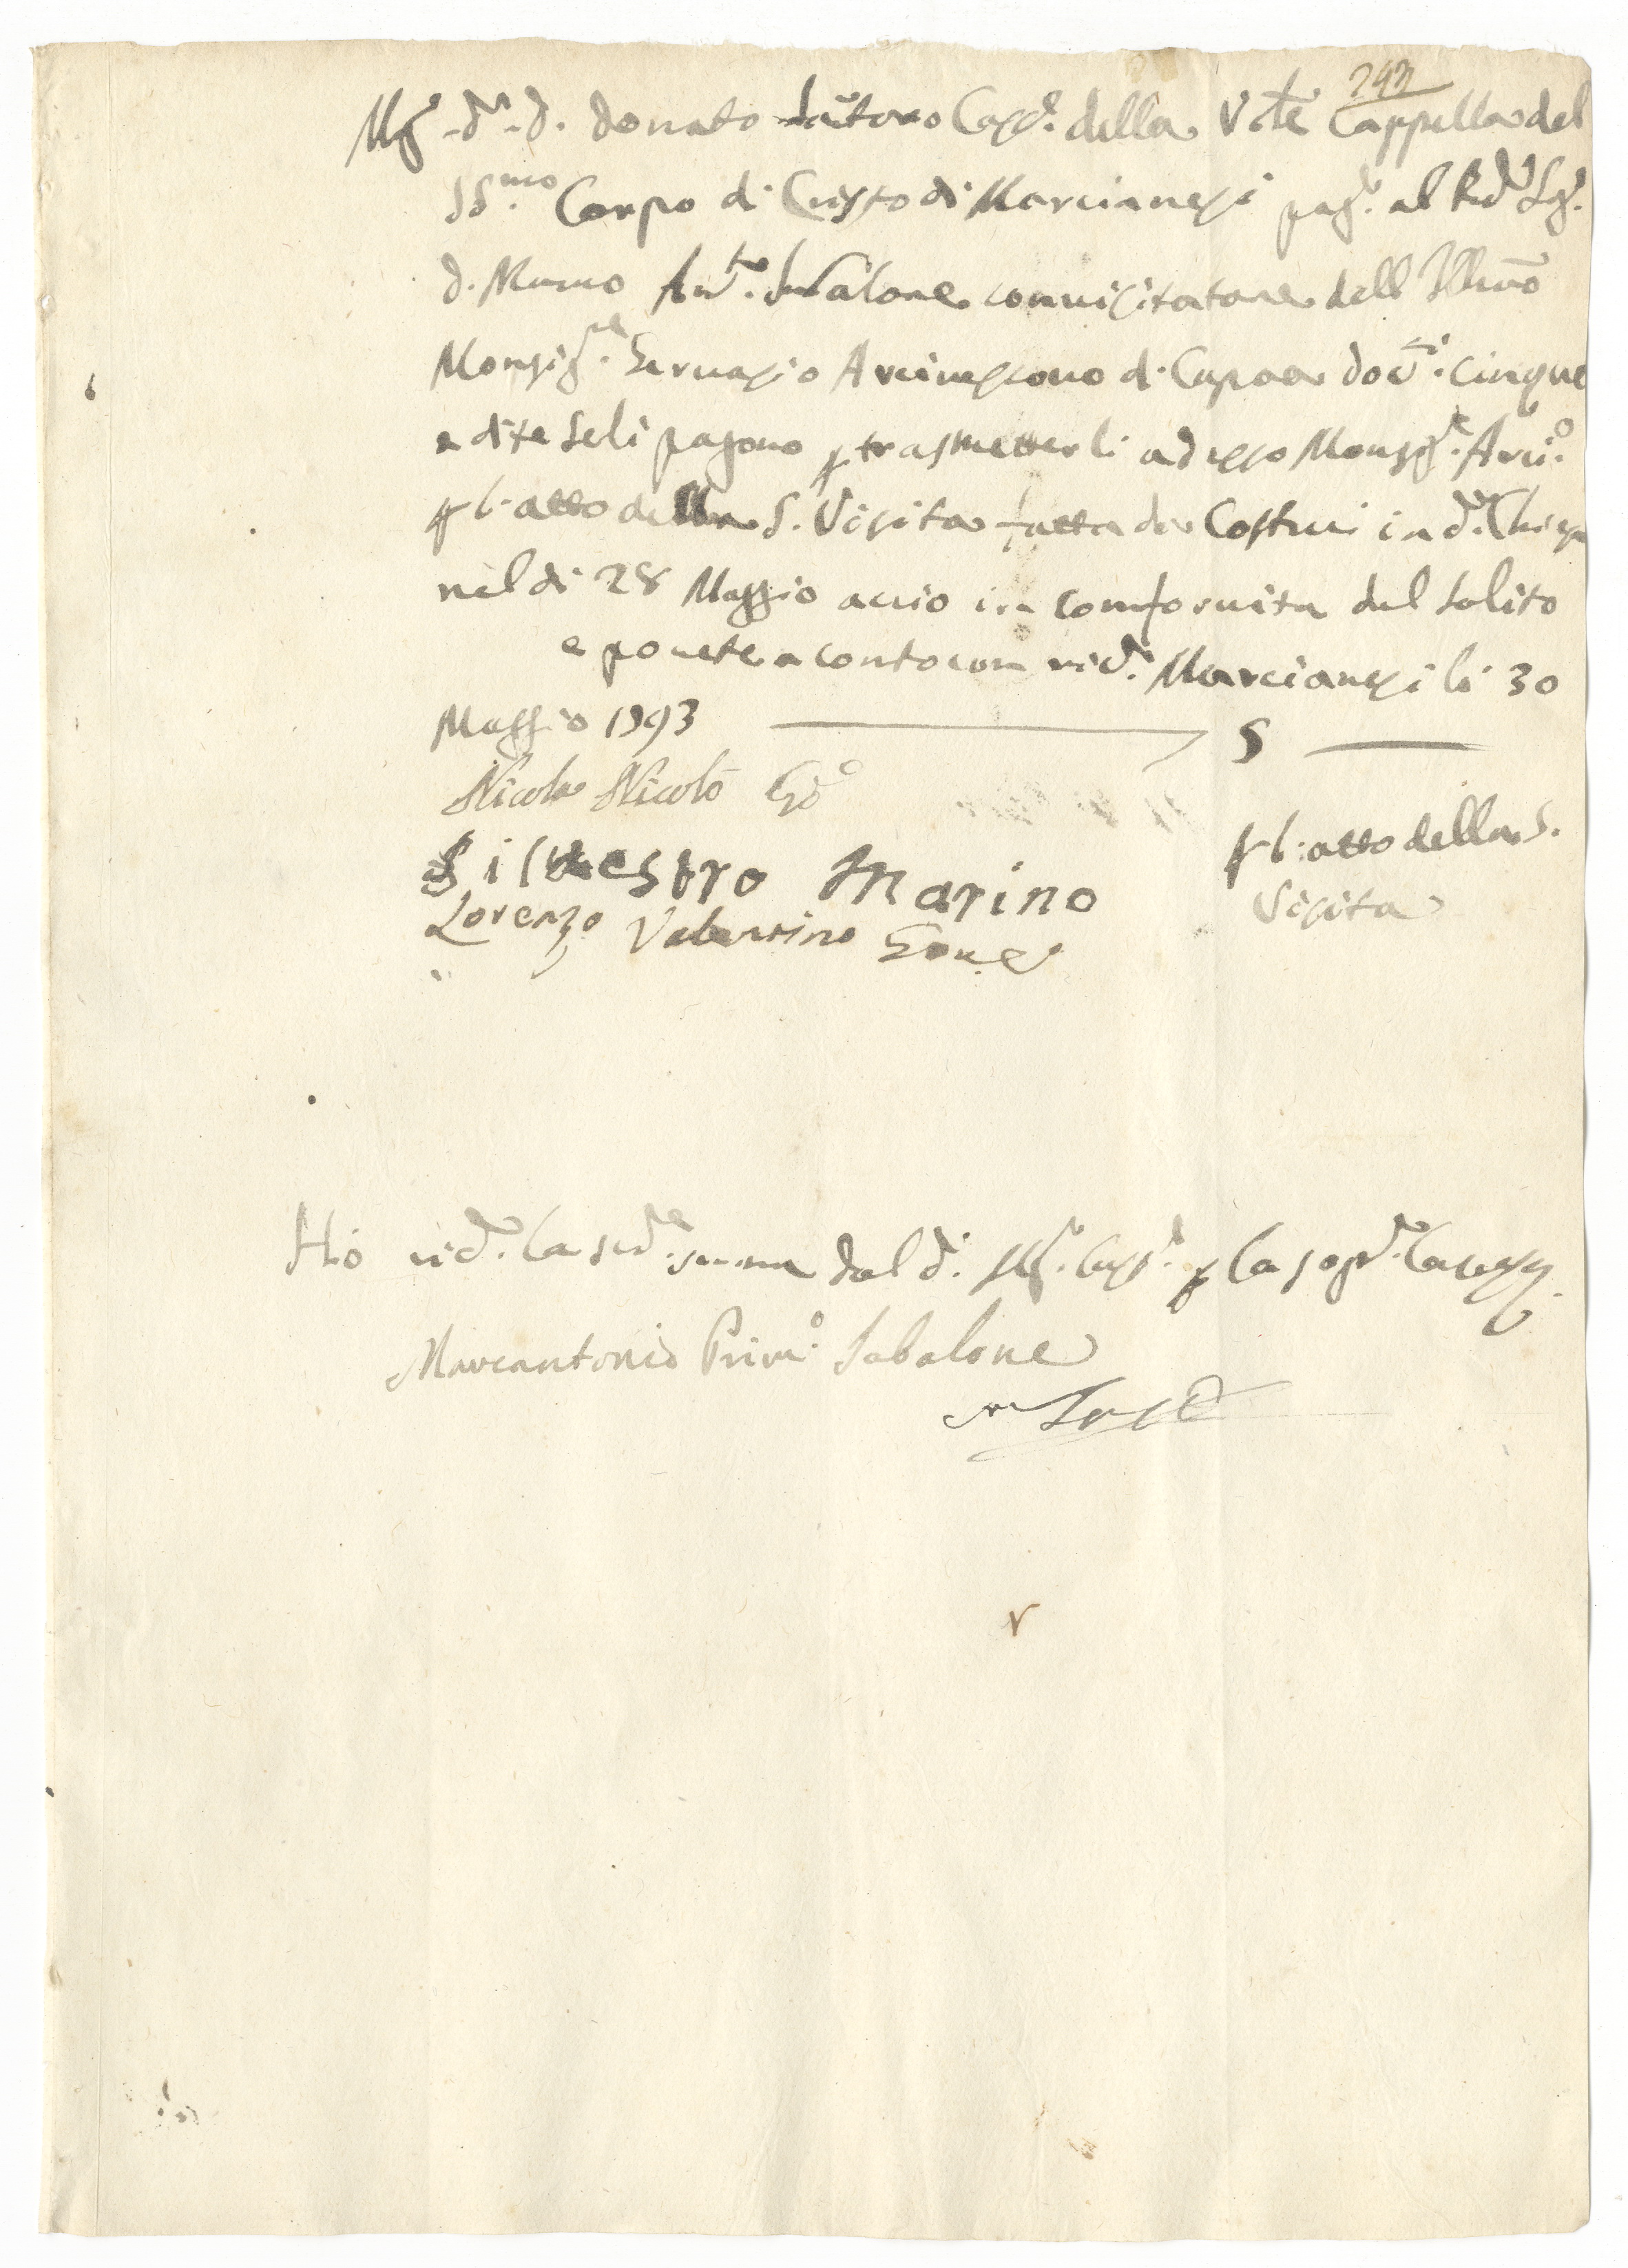 242
Mg.co Dr. D. Donato Capp.e della V.ble Cappella del
SS.mo Corpo di Cristo di Marcianesi pag.e al Rd.o Sg.r
D. Marco Ant.o Sabalone convisitatore dell Illmo
Monsig.re Gervasio Arcivescovo di Capoa doc.ti cinque
e dite seli pagono p trasmetterli ad esso Monsg.re Arci.o
p l: atto della S. Visita fatta da Costui in d.a Chiesa
nel di 28 Maggio accio in conformita del solito
e ponete a conto con ric.a Marcianesi li 30
Maggio 1793 5
Nicola Nicolò
Silvestro Marino
p l: atto della S.
Visita
Lorenzo Valentino
Ho ric.a la sud.a summa dal d.o Mg.co Capp.e p la sopr.a Causa
Marcantonio Prim.o Sabalone